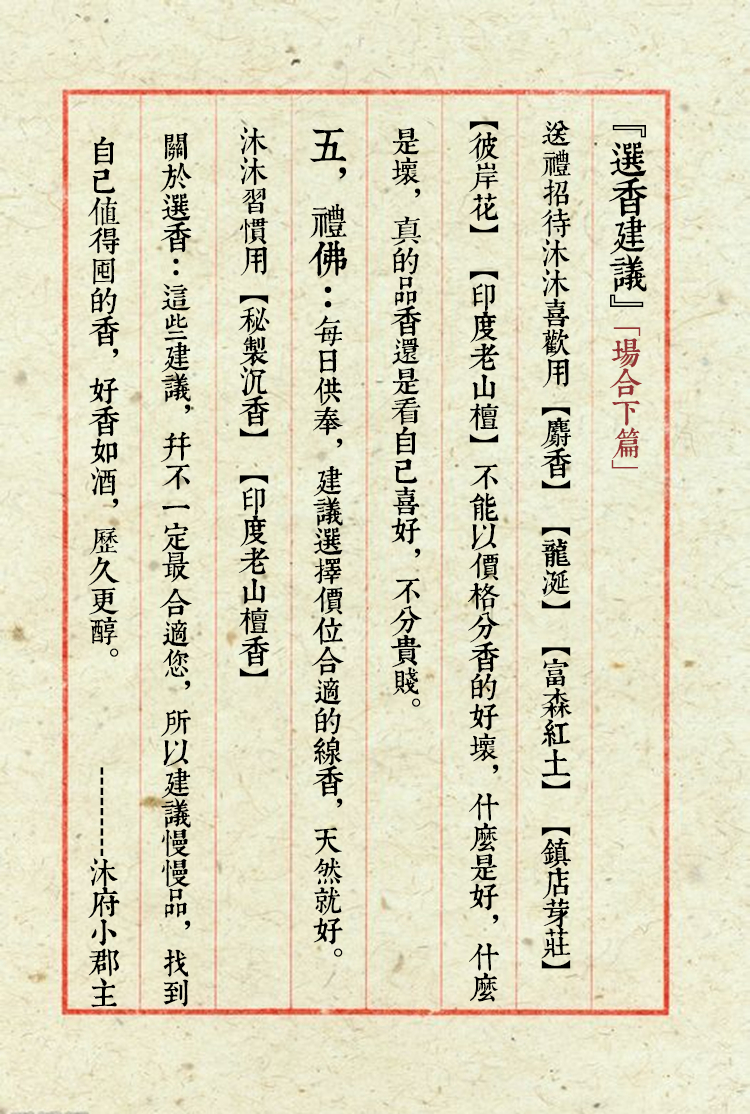 『選香建議』「場合下篇」
送禮招待沐沐喜歡用【麝香】【龍涎】【富森紅土】【鎮店芽莊】
【彼岸花】【印度老山檀】不能以價格分香的好壞，什麼是好，什麼
是壞，真的品香還是看自己喜好，不分貴賤。
五，禮佛：每日供奉，建議選擇價位合適的線香，天然就好。
沐沐習慣用【秘製沉香】【印度老山檀香】
關於選香：這些建議，幷不一定最合適您，所以建議慢慢品，找到
自己值得囤的香，好香如酒，歷久更醇。---------沐府小郡主